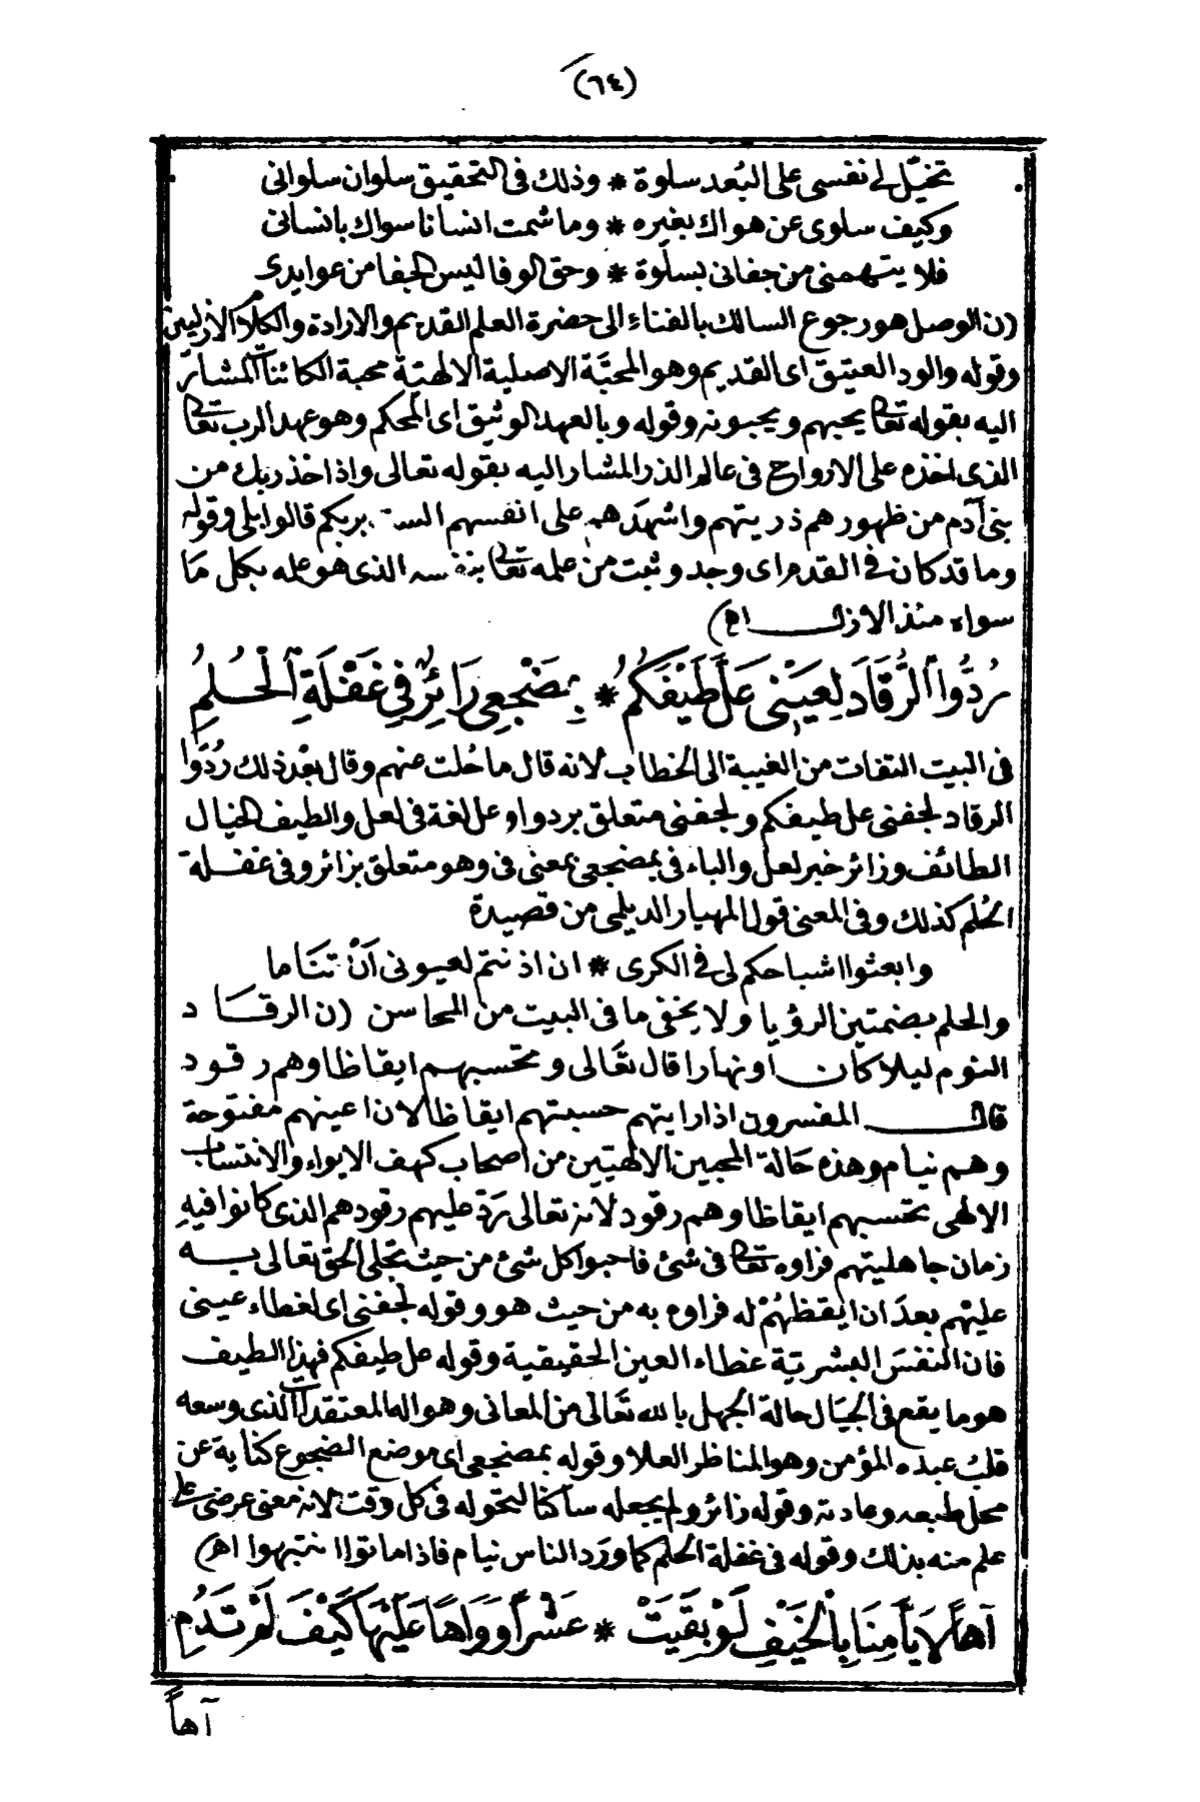 (٦٤)
تخيّل لي نفسي على البُعد سلوة * وذلك في التحقيق سلوان سلواني
وكيف سلوى عن هواك بغيره * وما شمت انسانا سواك بانساني
فلا يتهمني من جفاني بسلوة * وحق الوفا ليس الجفا من عوايدى
(ن الوصل هو رجوع السالك بالفناء الى حضرة العلم القديم والارادة والكلام الازليين
وقوله والود العتيق اى القديم وهو المحبّة الاصلية الالهيّة محبة الكائنات المشار
اليه بقوله تعالى يحبهم ويحبونه وقوله وبالعهد الوثيق اى المحكم وهو عهد الرب تعالى
الذى اخذه على الارواح فى عالم الذر المشار اليه بقوله تعالى واذ اخذ ربك من
بنى آدم من ظهورهم ذريتهم واشهدهم على انفسهم الست بربكم قالوا بلى وقوله
وما قد كان فى القدم اى وجد وثبت من علمه تعالى بنفسه الذى هو علمه بكل ما
سواه منذ الازل اه)
رُدُّوا الرُّقَادَ لِعَيْنِى عَلَّ طَيْفَكُمُ * بِمَضْجَعِى زَائِرٌ فِى غَفْلَةِ الْحُلُمِ
فى البيت التفات من الغيبة الى الخطاب لانه قال ما حُلت عنهم وقال بعْد ذلك رُدّوا
الرقاد لجفنى عل طيفكم ولجفنى متعلق بردوا وعل لغة فى لعل والطيف الخيال
الطائف وزائر خبر لعل والباء فى بمضجعى بمعنى فى وهو متعلق بزائر وفى غفلة
الحُلم كذلك وفى المعنى قول المهيار الديلمى من قصيدة
وابعثوا اشباحكم لى فى الكرى * ان اذنتم لعيونى اَنْ تنَاما
والحلم بضمتين الرؤيا ولا يخفى ما فى البيت من المحاسن (ن الرقاد
النوم ليلا كان أو نهارا قال تعَالى وتحسبهم ايقاظا وهم رقود
قال المفسرون اذا رايتهم حسبتهم ايقاظا لان اعينهم مفتوحة
وهم نيام وهذه حالة المحبين الالهيّين من اصحاب كهف الايواء والانتساب
الالهى تحسبهم ايقاظا وهم رقود لانه تعالى رَدّ عليهم رقودهم الذى كانوا فيهِ
زمان جاهليتهم فراوه تعالى فى شئ فاحبوا كل شئ من حيث تجلى الحق تعالى به
عليهم بعدَ ان ايقظهُمْ له فراوه به من حيث هو وقوله لجفنى اى لغطاء عينى
فان النفسَ البشريّة غطاء العين الحقيقية وقوله عل طيفكم فهذا الطيف
هو ما يقع فى الخيَال حالة الجهل بالله تعَالى من المعانى وهو اله المعتقدات الذى وسعه
قلبُ عبده المؤمن وهو المناظر العلا وقوله بمضجعى اى موضع الضجوع كناية عن
محل طبعه وعادته وقوله زائر ولم يجعله ساكنا لتحوله فى كل وقت لانه معنى عرضى على
علم منه بذلك وقوله فى غفلة الحلم كما ورَد الناس نيام فاذا ماتوا انتبهوا اه)
آهاً لِايَّامِنَا بِالْخَيْفِ لَوْ بَقِيَتْ * عَشْراً وَوَاهاً عَلَيْهَا كَيْفَ لَمْ تَدُمِ
آهاً